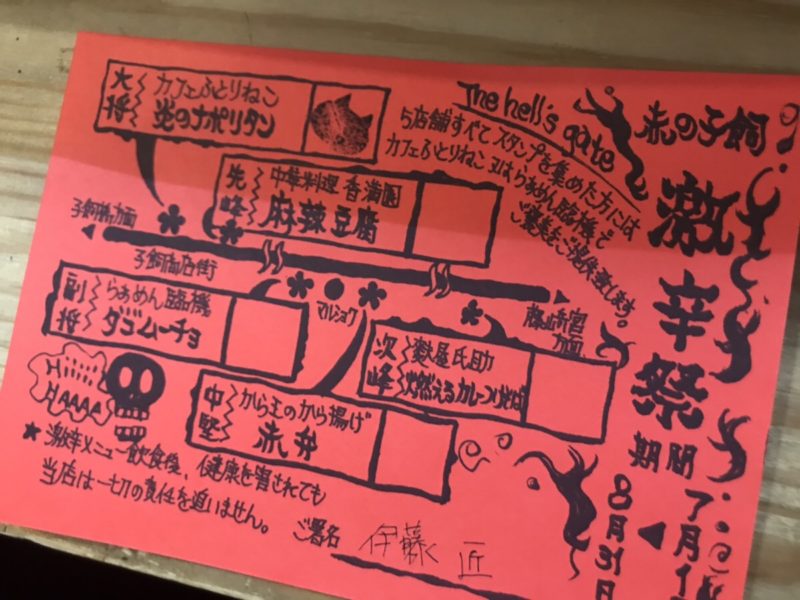 赤の子飼
激辛祭
期間
7月1
8月31日
The hell's gate
5店舗すべてスタンプを集めた方には
カフェふとりねこ又はらぁめん臨機で
ご褒美をご提供致します。
大将
カフェふとりねこ
炎のナポリタン
先峰
中華料理 香満園
麻辣豆腐
子飼橋方面
子飼商店街
マルショク
藤崎宮
方面
副将
らぁめん臨機
ダゴムーチョ
次峰
麩屋氏助
燃えるカレーつけそば
中堅
から王のから揚げ
赤弁
★激辛メニュー飲食後、健康を害されても
当店は一切の責任を追いません。
ご署名 伊藤 匠